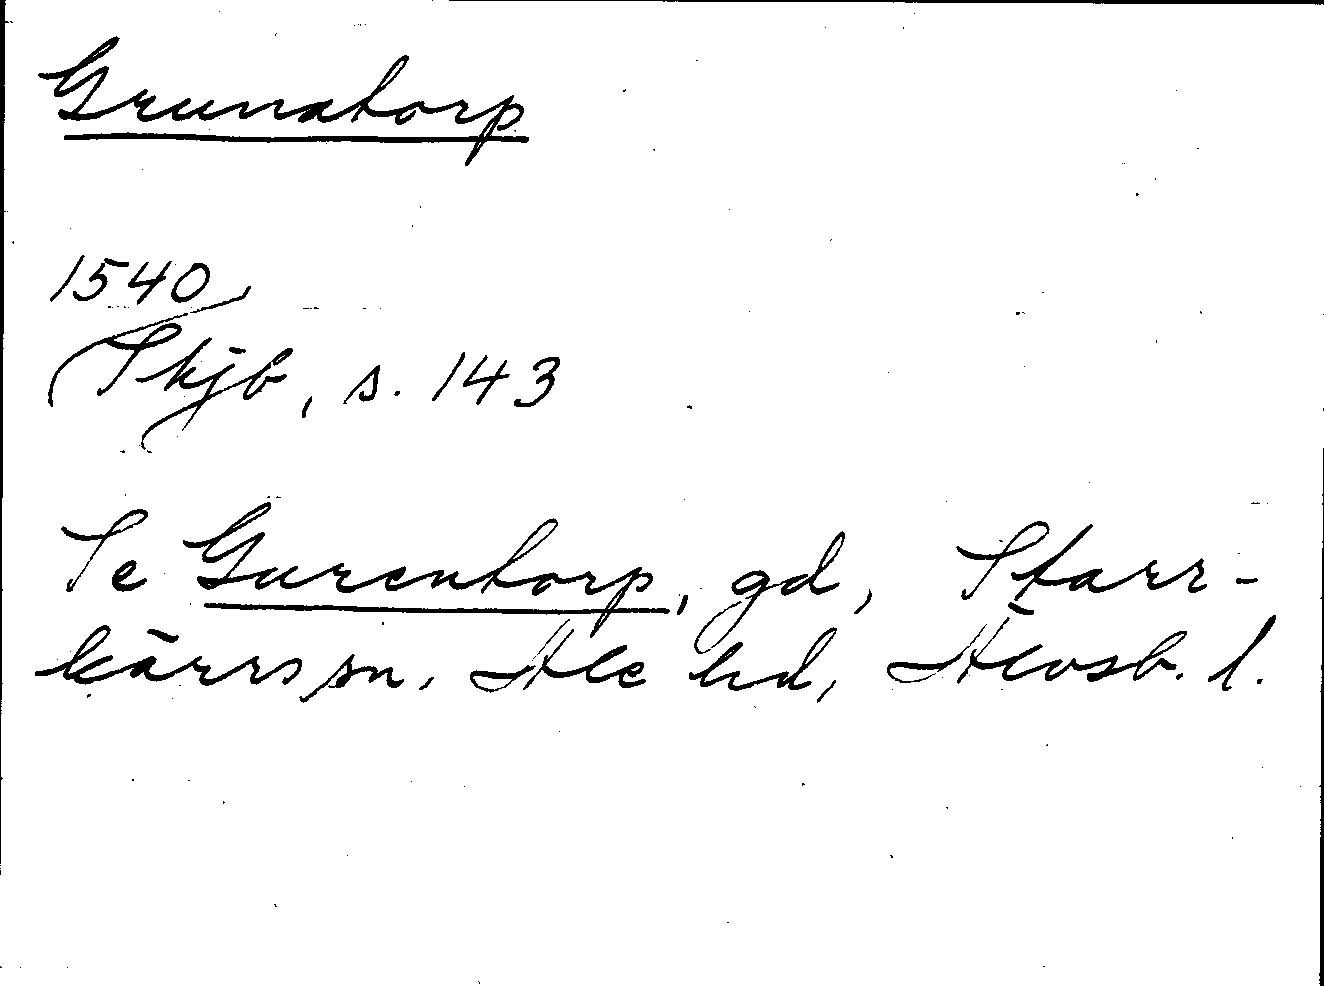 Grunatorp
1540
Skjb, s. 143
Se Gurentorp, gd, Starr-
kärrs sn, Ale hd, Älvsb. l.